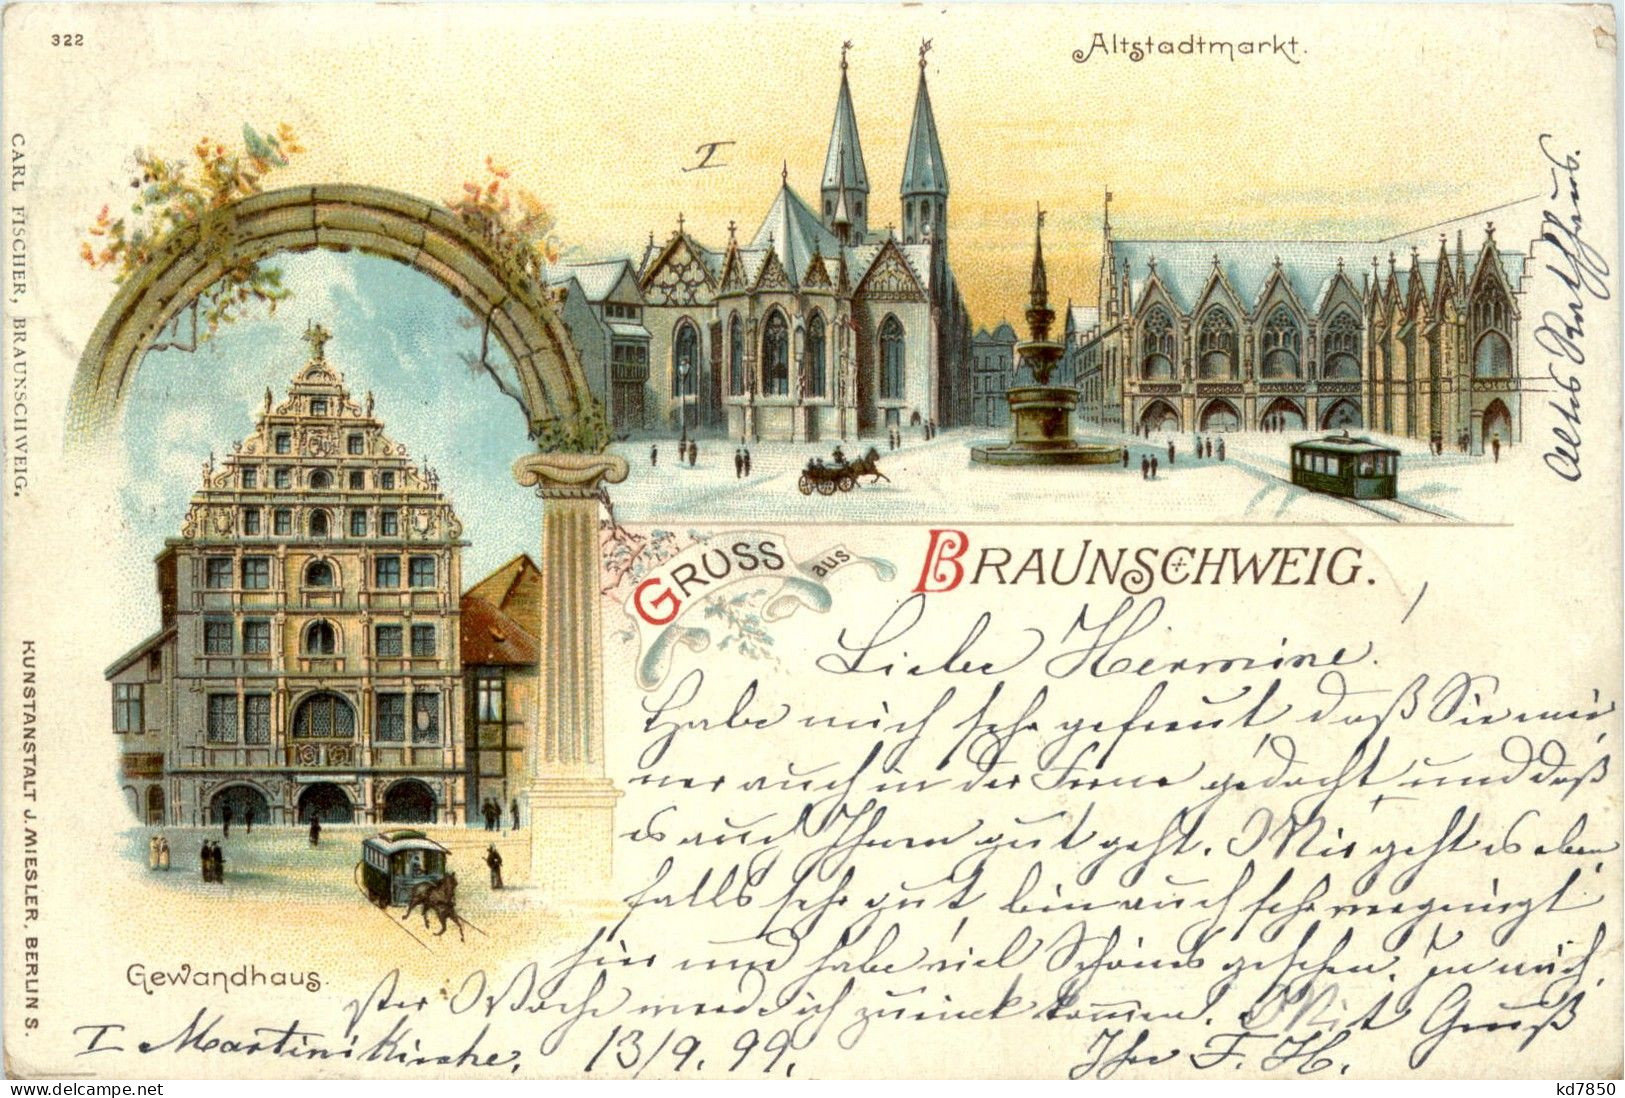 322
Altstadtmarkt.
I
CARL FISCHER, BRAUNSCHWEIG.
KUNSTANSTALT J. MIESLER, BERLIN S.
Altes Rathhaus.
GRUSS aus BRAUNSCHWEIG.
Gewandhaus.
Liebe Hermine!
Habe mich sehr gefreut, daß Sie mei
ner auch in der Ferne gedacht, und daß
es auch Ihnen gut geht. Mir geht es eben
falls sehr gut, bin auch sehr vergnügt
hier und habe viel Schönes gesehen. In näch
ster Woche werde ich zurück kommen. Mit Gruß
Ihr F. H.
I Martini Kirche, 13/9. 99.
www.delcampe.net
kd7850